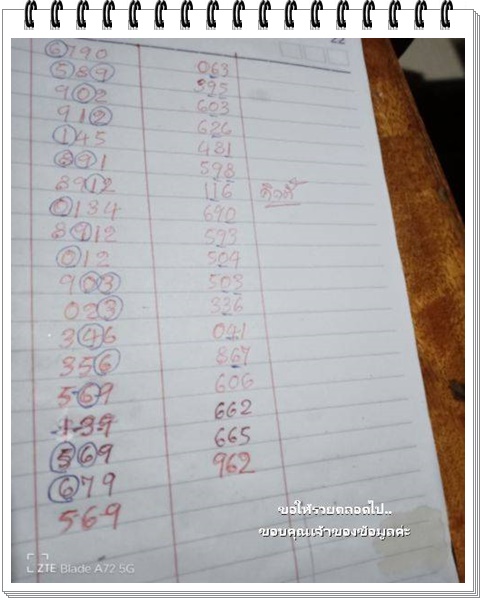 22
6790
589 063
902 595
912 603
145 626
891 481
8912 598
0134 116
8912 690
012 593
903 504
023 503
346 336
356 041
569 867
139 606
569 662
679 665
569 962
ขอให้รวยตลอดไป..
ขอบคุณเจ้าของข้อมูลค่ะ
ZTE Blade A72 5G